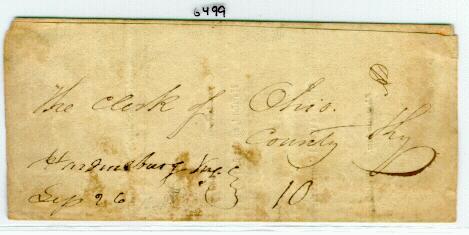 6499
The Clerk of Ohio
County Ky
Hardinsburg Ky
Sep 26
10